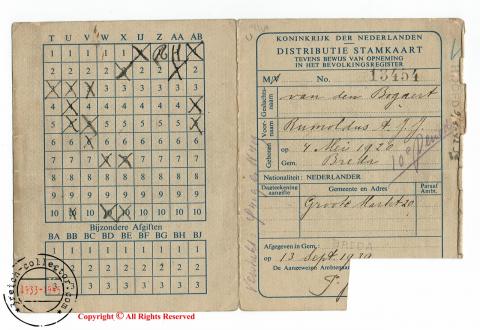 T U V W X IJ Z AA AB
1 1 1 1 1 1 1 1
2 2 2 2 2 2 2 2 2
3 3 3 3 3 3 3 3 3
4 4 4 4 4 4 4 4 4
5 5 5 5 5 5 5 5 5
6 6 6 6 6 6 6 6 6
7 7 7 7 7 7 7 7 7
8 8 8 8 8 8 8 8 8
9 9 9 9 9 9 9 9 9
10 10 10 10 10 10 10 10 10
Bijzondere Afgiften
BA BB BC BD BE BF BG BH BJ
1 1 1 1 1 1 1 1 1
2 2 2 2 2 2 2 2 2
3 3 3 3 3 3 3 3
KONINKRIJK DER NEDERLANDEN
DISTRIBUTIE STAMKAART
TEVENS BEWIJS VAN OPNEMING
IN HET BEVOLKINGSREGISTER
M/V No. 13454
Geslachtsnaam van den Bogaert
Voornaam Rumoldus A. J. J.
Geboren op 4 Mei 1926
Gem. Breda
Nationaliteit: NEDERLANDER
Dagteekening aangifte Gemeente en Adres Paraaf Ambt.
Groote Markt 20
Afgegeven in Gem. BREDA
op 13 Sept. 1939
De Aangewezen Ambtenaar
ireton-collector.com
1933-1945
Copyright © All Rights Reserved